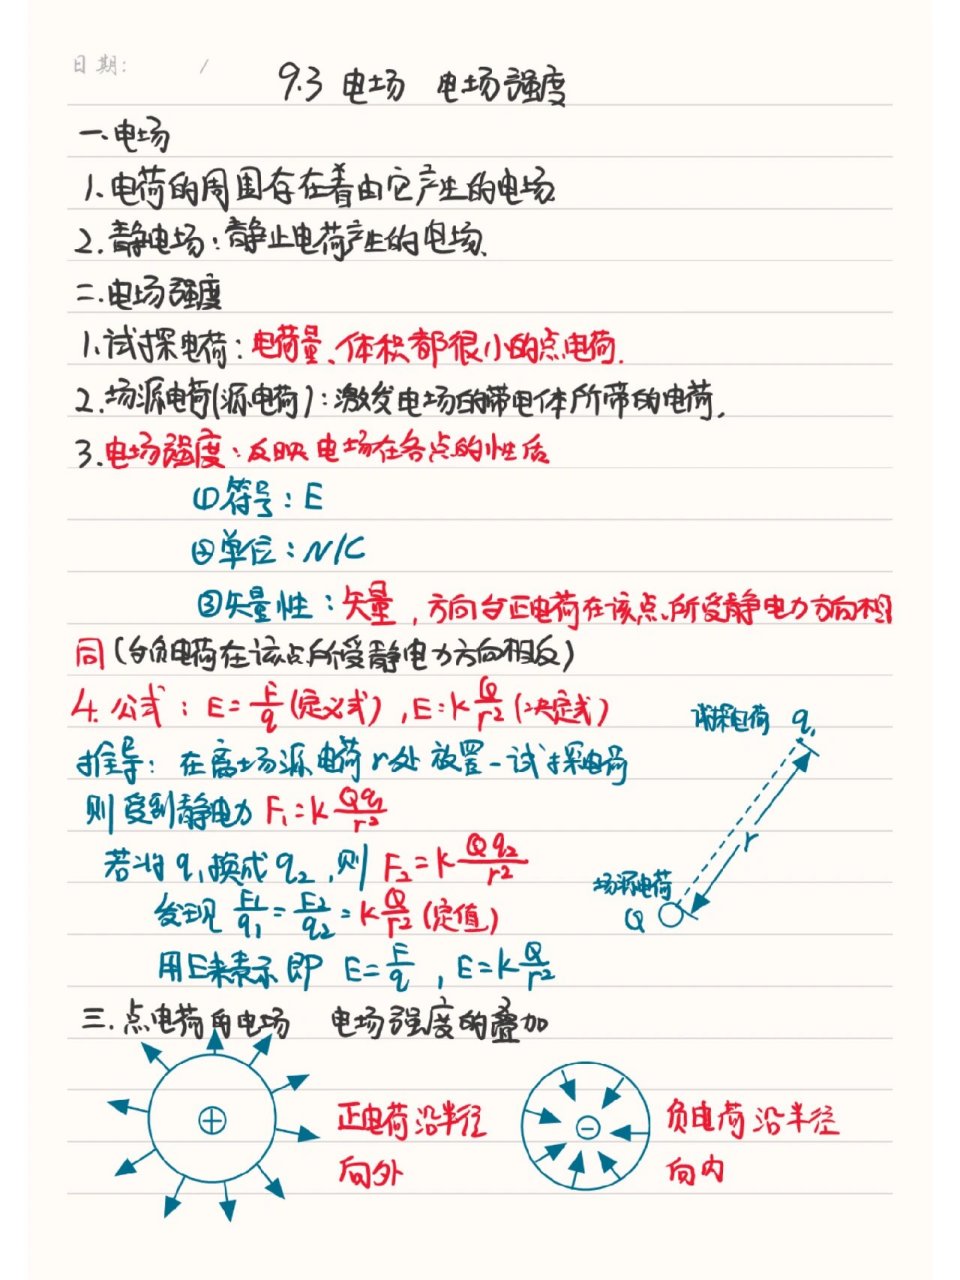 日期:   /
9.3 电场  电场强度
一.电场
1.电荷的周围存在着由它产生的电场
2.静电场:静止电荷产生的电场.
二.电场强度
1.试探电荷:电荷量、体积都很小的点电荷.
2.场源电荷(源电荷):激发电场的带电体所带的电荷.
3.电场强度:反映电场在各点的性质
①符号:E
②单位:N/C
③矢量性:矢量,方向与正电荷在该点所受静电力方向相
同(与负电荷在该点所受静电力方向相反)
4.公式:E=F/q(定义式),E=kQ/r²(决定式)
推导:在离场源电荷r处放置一试探电荷
则受到静电力F₁=kQq₁/r²
若将q₁换成q₂,则F₂=kQq₂/r²
发现F₁/q₁=F₂/q₂=kQ/r²(定值)
用E来表示即E=F/q,E=kQ/r²
试探电荷 q₁
r
场源电荷
Q
三.点电荷的电场  电场强度的叠加
+
正电荷沿半径
向外
-
负电荷沿半径
向内